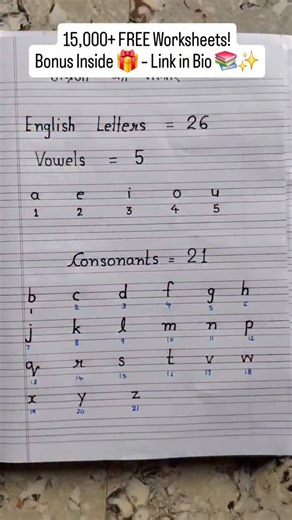 15,000+ FREE Worksheets!
Bonus Inside 🎁 - Link in Bio 📚✨
English Letters = 26
Vowels = 5
a e i o u
1 2 3 4 5
Consonants = 21
b c d f g h
1 2 3 4 5 6
j k l m n p
7 8 9 10 11 12
q r s t v w
13 14 15 16 17 18
x y z
19 20 21